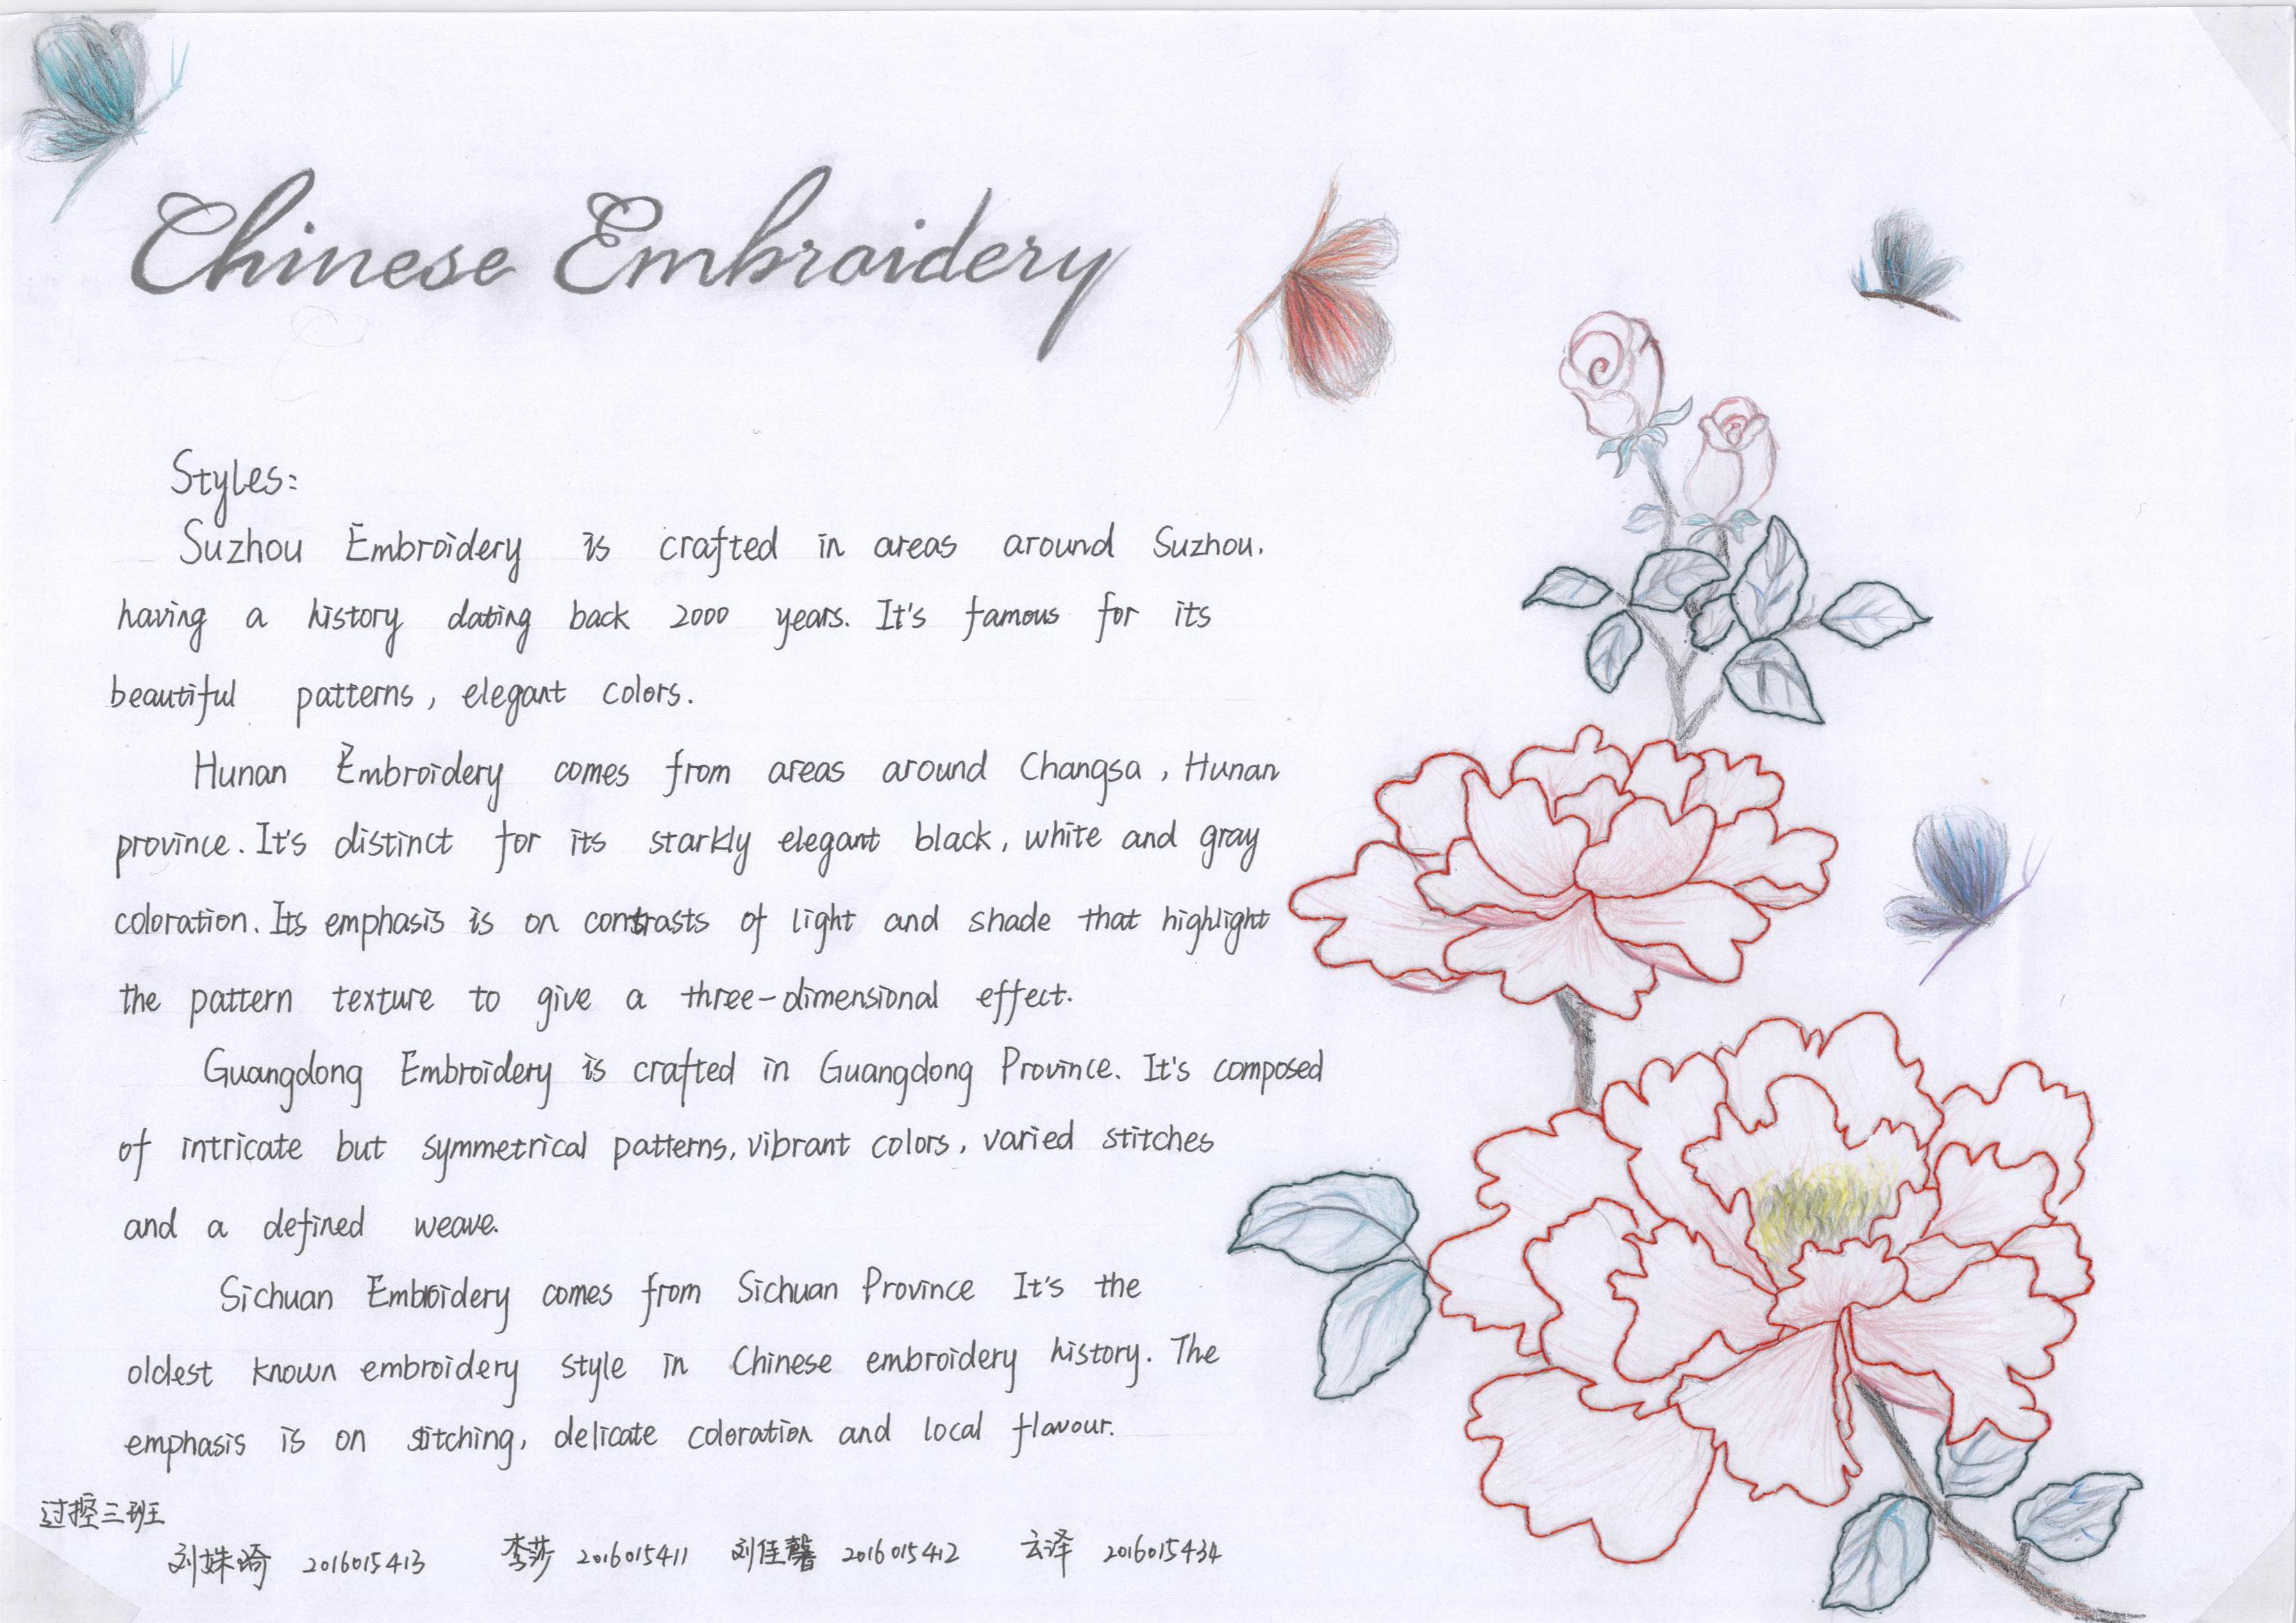 Chinese Embroidery
Styles:
Suzhou Embroidery is crafted in areas around Suzhou,
having a history dating back 2000 years. It's famous for its
beautiful patterns, elegant colors.
Hunan Embroidery comes from areas around Changsa, Hunan
province. It's distinct for its starkly elegant black, white and gray
coloration. Its emphasis is on contrasts of light and shade that highlight
the pattern texture to give a three-dimensional effect.
Guangdong Embroidery is crafted in Guangdong Province. It's composed
of intricate but symmetrical patterns, vibrant colors, varied stitches
and a defined weave.
Sichuan Embroidery comes from Sichuan Province It's the
oldest known embroidery style in Chinese embroidery history. The
emphasis is on stitching, delicate coloration and local flavour.
过控三班
刘姝琦 2016015413 李莎 2016015411 刘佳馨 2016015412 云译 2016015434